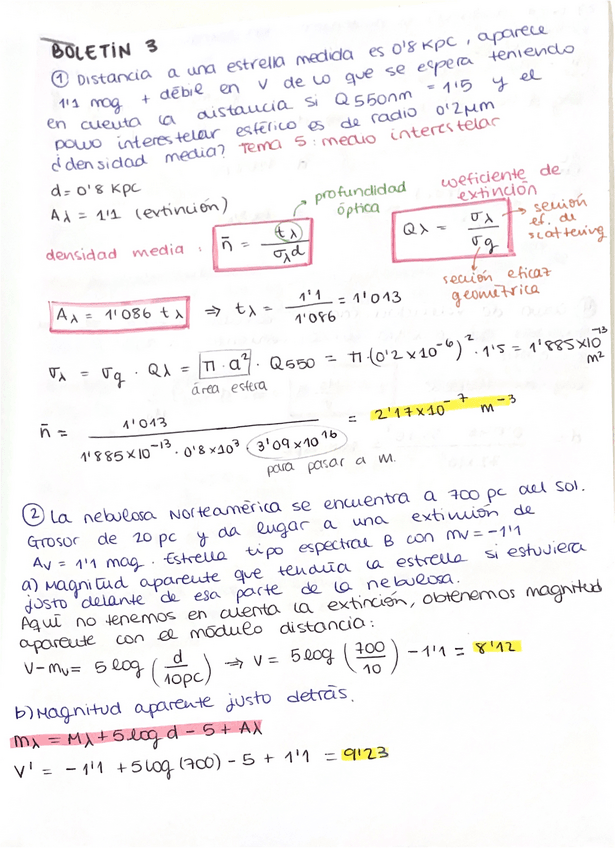 BOLETIN 3
① Distancia a una estrella medida es 0'8 Kpc, aparece
1'1 mag + débil en V de lo que se espera teniendo
en cuenta la distancia si Q 550nm = 1'5 y el
polvo interestelar esférico es de radio 0'2 μm
¿densidad media? Tema 5: medio interestelar
d = 0'8 Kpc
Aλ = 1'1 (extinción)
profundidad óptica
coeficiente de extinción
densidad media: n̄ = tλ / σλ d
Qλ = σλ / σg
sección ef. de scattering
sección eficaz geométrica
Aλ = 1'086 tλ ⇒ tλ = 1'1 / 1'086 = 1'013
σλ = σg · Qλ = π · a² · Q550 = π · (0'2 × 10⁻⁶)² · 1'5 = 1'885 × 10⁻¹³ m²
área esfera
n̄ = 1'013 / 1'885 × 10⁻¹³ · 0'8 × 10³ · 3'09 × 10¹⁶ = 2'17 × 10⁻⁷ m⁻³
para pasar a m.
② La nebulosa Norteamérica se encuentra a 700 pc del Sol.
Grosor de 20 pc y da lugar a una extinción de
Av = 1'1 mag. Estrella tipo espectral B con mv = -1'1
a) Magnitud aparente que tendría la estrella si estuviera
justo delante de esa parte de la nebulosa.
Aquí no tenemos en cuenta la extinción, obtenemos magnitud
aparente con el módulo distancia:
V - mv = 5 log (d / 10pc) ⇒ V = 5 log (700 / 10) - 1'1 = 8'12
b) Magnitud aparente justo detrás.
mλ = Mλ + 5 log d - 5 + Aλ
V' = -1'1 + 5 log (700) - 5 + 1'1 = 9'23